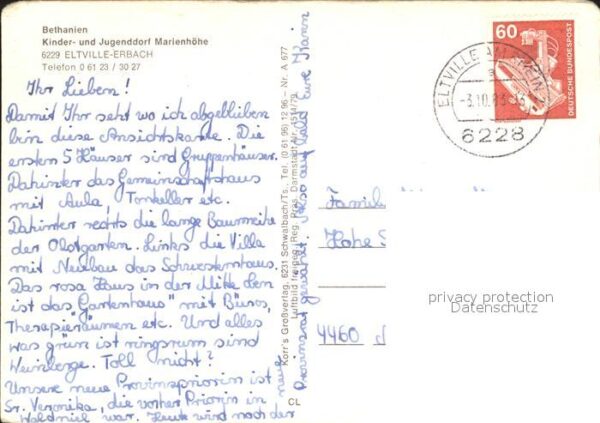 Bethanien
Kinder- und Jugenddorf Marienhöhe
6229 ELTVILLE-ERBACH
Telefon 0 61 23 / 30 27
Ihr Lieben!
Damit Ihr seht wo ich abgeblieben
bin diese Ansichtskarte. Die
ersten 5 Häuser sind Gruppenhäuser.
Dahinter das Gemeinschaftshaus
mit Aula, Tonkeller etc.
Dahinter rechts die lange Baumreihe
der Obstgarten. Links die Villa
mit Neubau das Schwesternhaus.
Das rosa Haus in der Mitte den
ist das "Gartenhaus" mit Büros,
Therapieräumen etc. Und alles
was grün ist ringsrum sind
Weinberge. Toll nicht?
Unsere neue Provinzpriorin ist
Sr. Veronika, die vorher Priorin in
Waldniel war. Heute wird noch der
neue
Provinzrat gewählt. Also auf bald Eure
Korr's Großverlag, 6231 Schwalbach/Ts., Tel. (0 61 96) 12 96 - Nr. A 677
Luftbild freigeg. Reg. Präs. Darmstadt Nr. 1514/79
CL
60
DEUTSCHE BUNDESPOST
ELTVILLE AM RHEIN 1
a
-3.10.83
6228
Familie
Hohe S
4460
privacy protection
Datenschutz